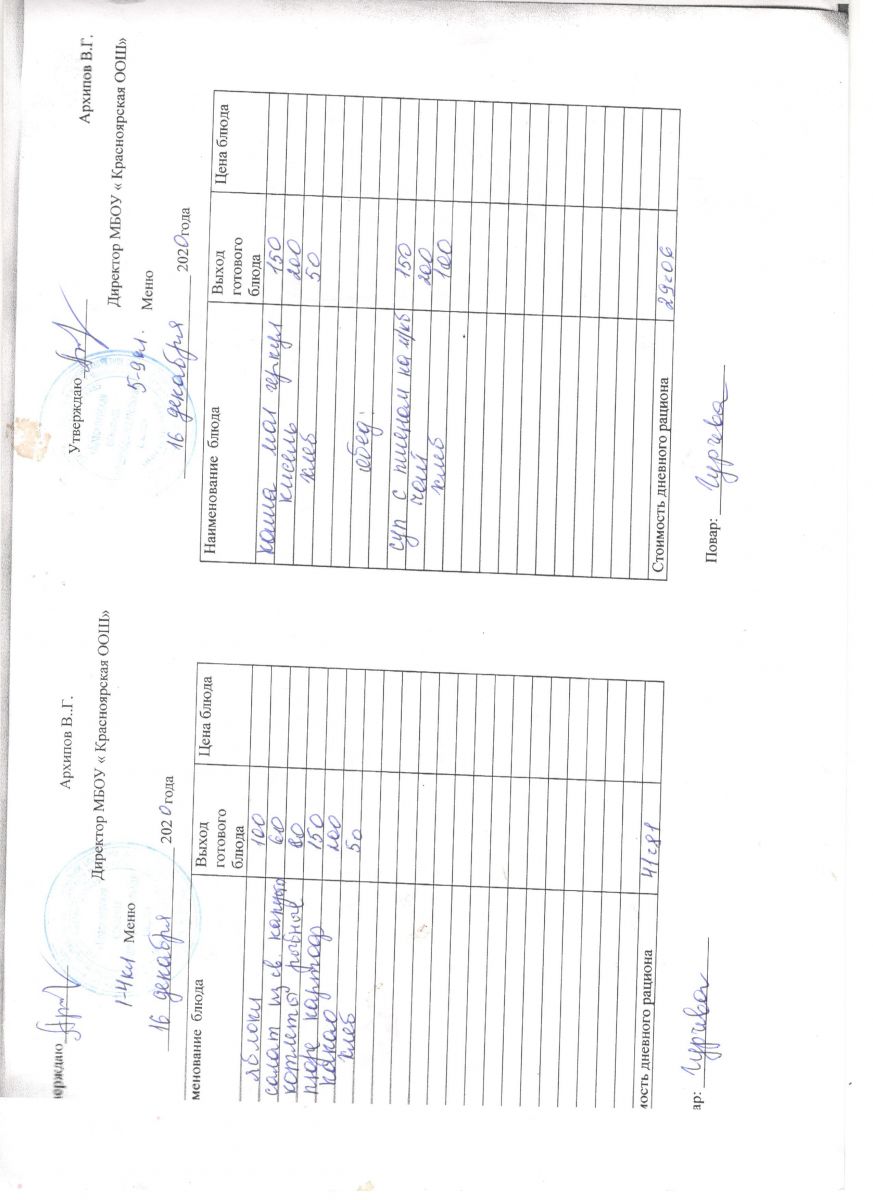 Утверждаю
Архипов В.Г.
Директор МБОУ « Красноярская ООШ»
5-9 кл. Меню
16 декабря 2020 года
Наименование блюда Выход готового блюда Цена блюда
каша мол геркул 150
кисель 200
хлеб 50
обед:
суп с пшеном на м/кб 150
чай 200
хлеб 100
Стоимость дневного рациона 29=06
Повар:
ерждаю
Архипов В..Г.
Директор МБОУ « Красноярская ООШ»
1-4кл Меню
16 декабря 2020 года
менование блюда Выход готового блюда Цена блюда
яблоки 100
салат из св. капусты 60
котлеты рыбные 80
пюре картоф 150
какао 200
хлеб 50
мость дневного рациона 41=81
ар: